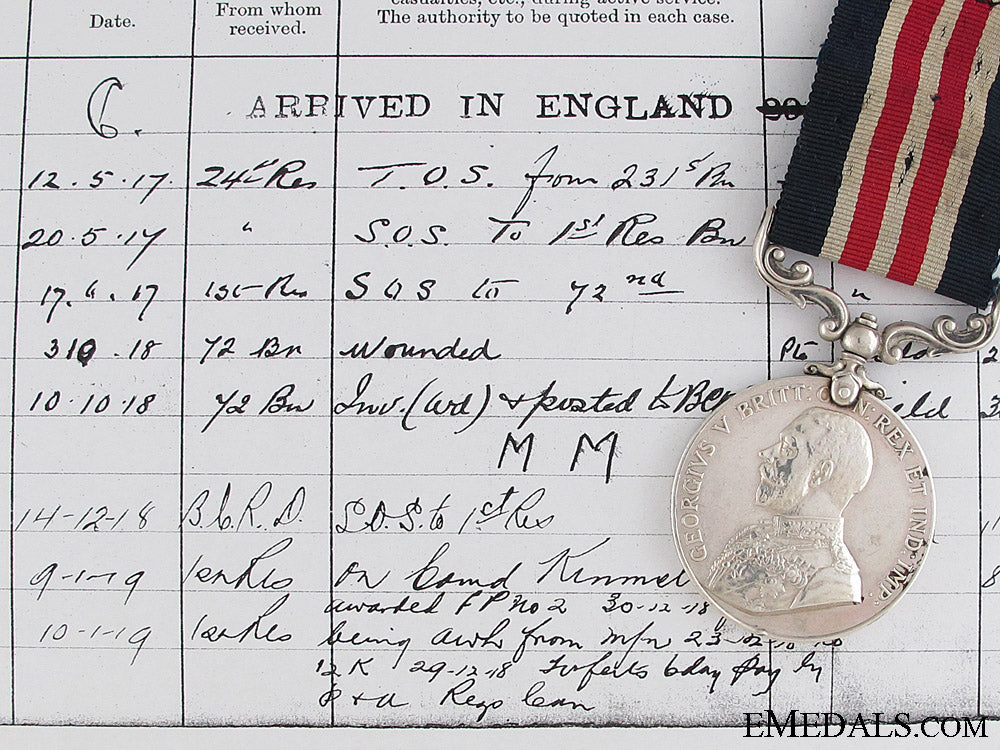 casualties, etc., during active service.
Date. From whom received. The authority to be quoted in each case.
6. ARRIVED IN ENGLAND
12.5.17. 24th Res T.O.S. from 231st Bn
20.5.17 " S.O.S. To 1st Res Bn
17.6.17 1st Res SOS to 72nd "
310.18 72 Bn Wounded
10.10.18 72 Bn Inv. (wd) + posted to BC
M M
14-12-18 B.C.R.D. S.O.S. to 1st Res
9-1-19 1st Res On Comd Kinmel
awarded FP No 2 30-12-18
10-1-19 1st Res being awl from m/n 23
12 K 29-12-18 Forfeits 6 day Pay by
Regs Can
GEORGIVS V BRITT: OMN: REX ET IND: IMP:
EMEDALS.COM